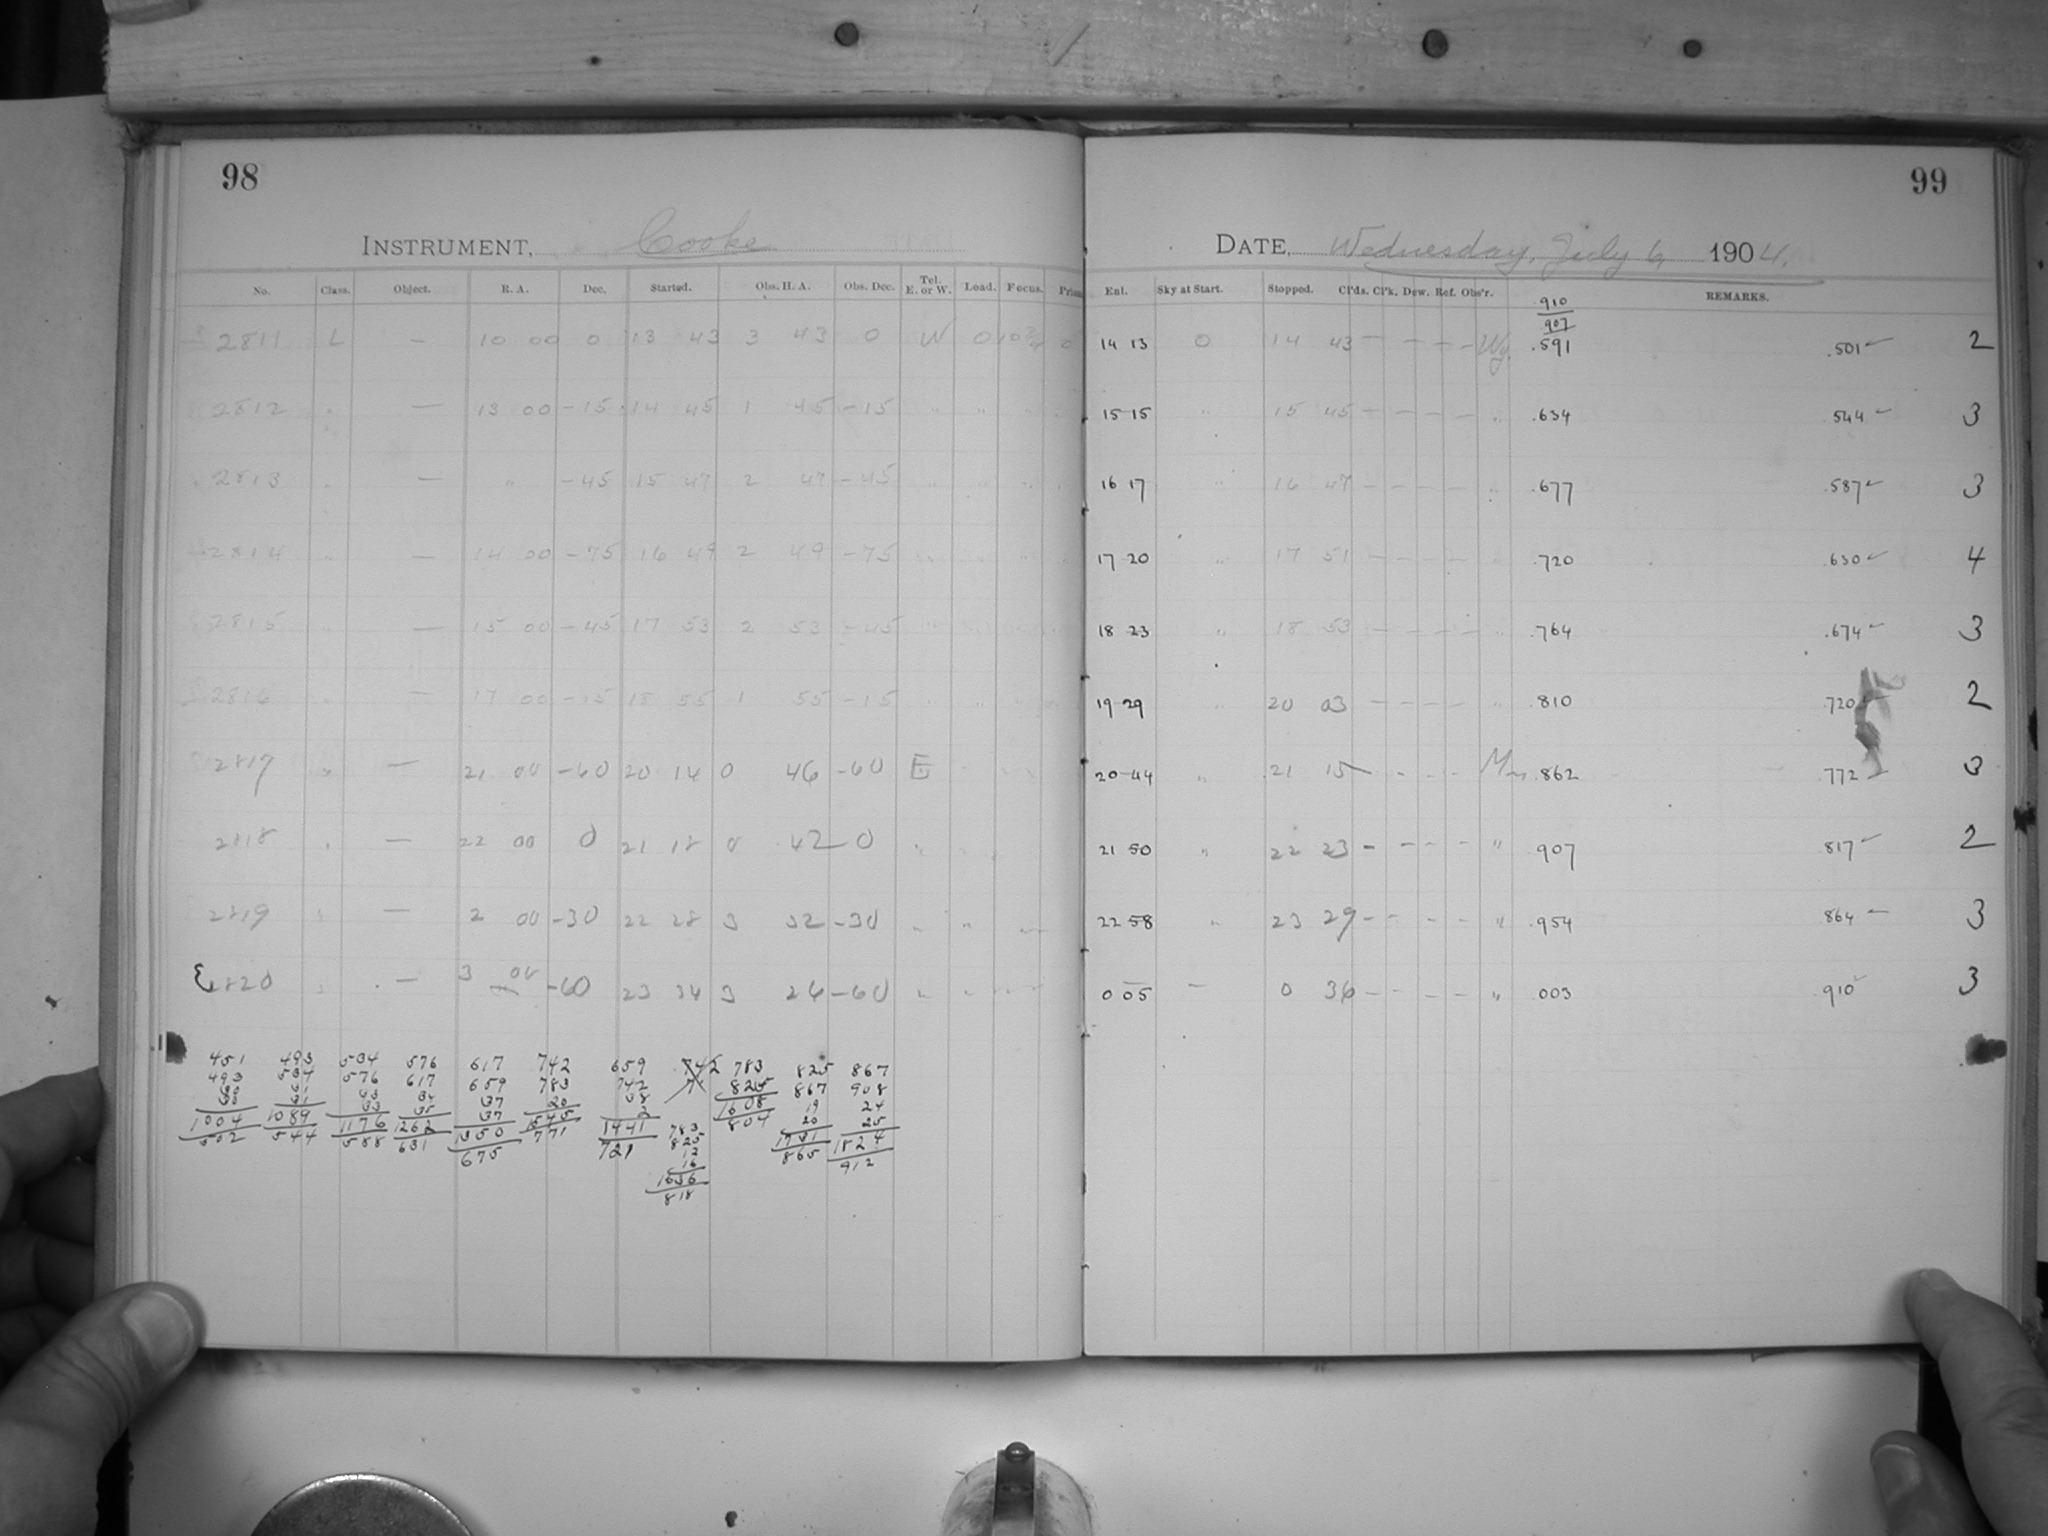 98
INSTRUMENT, Cooke
No. Class. Object. R. A. Dec. Started. Obs. H. A. Obs. Dec. Tel. E. or W. Load. Focus. Prism
2811 L — 10 00 0 13 43 3 43 0 W 0 10¾ 0
2812 " — 13 00 -15 14 45 1 45 -15 " " " "
2813 " — " -45 15 47 2 47 -45 " " " "
2814 " — 14 00 -75 16 49 2 49 -75 " " " "
2815 " — 15 00 -45 17 53 2 53 -45 " " " "
2816 " — 17 00 -15 18 55 1 55 -15 " " " "
2817 " — 21 00 -60 20 14 0 46 -60 E " " "
2818 " — 22 00 0 21 18 0 42 0 " " "
2819 " — 2 00 -30 22 28 3 32 -30 " " "
2820 " — 3 00 -60 23 34 3 26 -60 " " "
451 493 534 576 617 742 659 742 783 825 867
493 534 576 617 659 783 742 825 867 908
30 31 33 34 37 20 38 1608 19 24
30 31 33 35 37 1545 2 804 20 25
1004 1089 1176 1262 1350 771 1441 783 1731 1824
502 544 588 631 675 721 825 865 912
12
16
1636
818
99
DATE, Wednesday, July 6, 1904.
Ent. Sky at Start. Stopped. Cl'ds. Cl'k. Dew. Ref. Obs'r. REMARKS.
910
907
14 13 0 14 43 — — — — Wy. .591 .501 2
15-15 " 15 45 — — — — " .634 .544 3
16 17 " 16 47 — — — — " .677 .587 3
17-20 " 17 51 — — — — " .720 .630 4
18 23 " 18 53 — — — — " .764 .674 3
19-29 " 20 03 — — — — " .810 .720 2
20-44 " 21 15 — — — — .862 .772 3
21 50 " 22 23 — — — — " .907 817 2
22 58 " 23 29 — — — — " .954 .864 3
0 05 — 0 36 — — — — " .003 .910 3